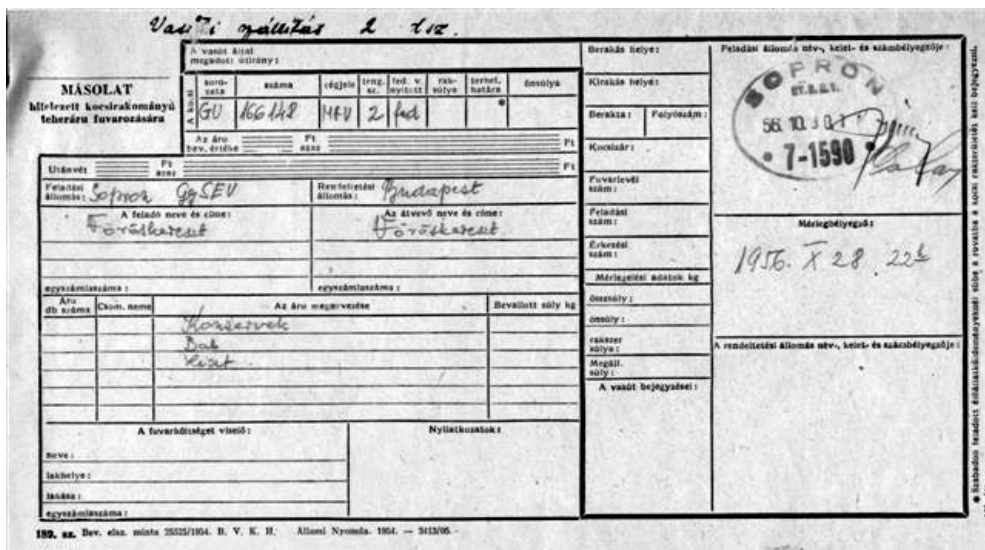 Vasúti szállítás 2 dsz.
A vasút által
megadott útirány:
MÁSOLAT
hitelezett kocsirakományú
teheráru fuvarozására
A kocsi
sorozata
száma
cégjele
teng. sz.
fed. v. nyitott
raksúlya
terhel. határa
önsúlya
GU 166148 MÁV 2 fed *
Az áru
bev. értéke
Ft
azaz
Ft
Utánvét
Ft
azaz
Ft
Feladási
állomás: Sopron GySEV
Rendeltetési
állomás: Budapest
A feladó neve és címe:
Vöröskereszt
Az átvevő neve és címe:
Vöröskereszt
egyszámlaszáma:
egyszámlaszáma:
Áru
db száma
Csom. neme
Az áru megnevezése
Bevallott súly kg
Konzervek
Bab
Liszt
A fuvarköltséget viselő:
Nyilatkozatok:
neve:
lakhelye:
lakása:
egyszámlaszáma:
Berakás helye:
Kirakás helye:
Berakta:
Folyószám:
Kocsizár:
Fuvarlevél
szám:
Feladási
szám:
Érkezési
szám:
Mérlegelési adatok kg
összsúly:
önsúly:
rakszer
súlya:
Megáll.
súly:
A vasút bejegyzései:
Feladási állomás név-, kelet- és számbélyegzője:
SOPRON
56. 10. 30.
• 7-1590 •
Mérlegbélyegző:
1956. X 28 22h
A rendeltetési állomás név-, kelet- és számbélyegzője:
189. sz. Bev. elsz. minta 25525/1954. B. V. K. H.
Állami Nyomda. 1954.